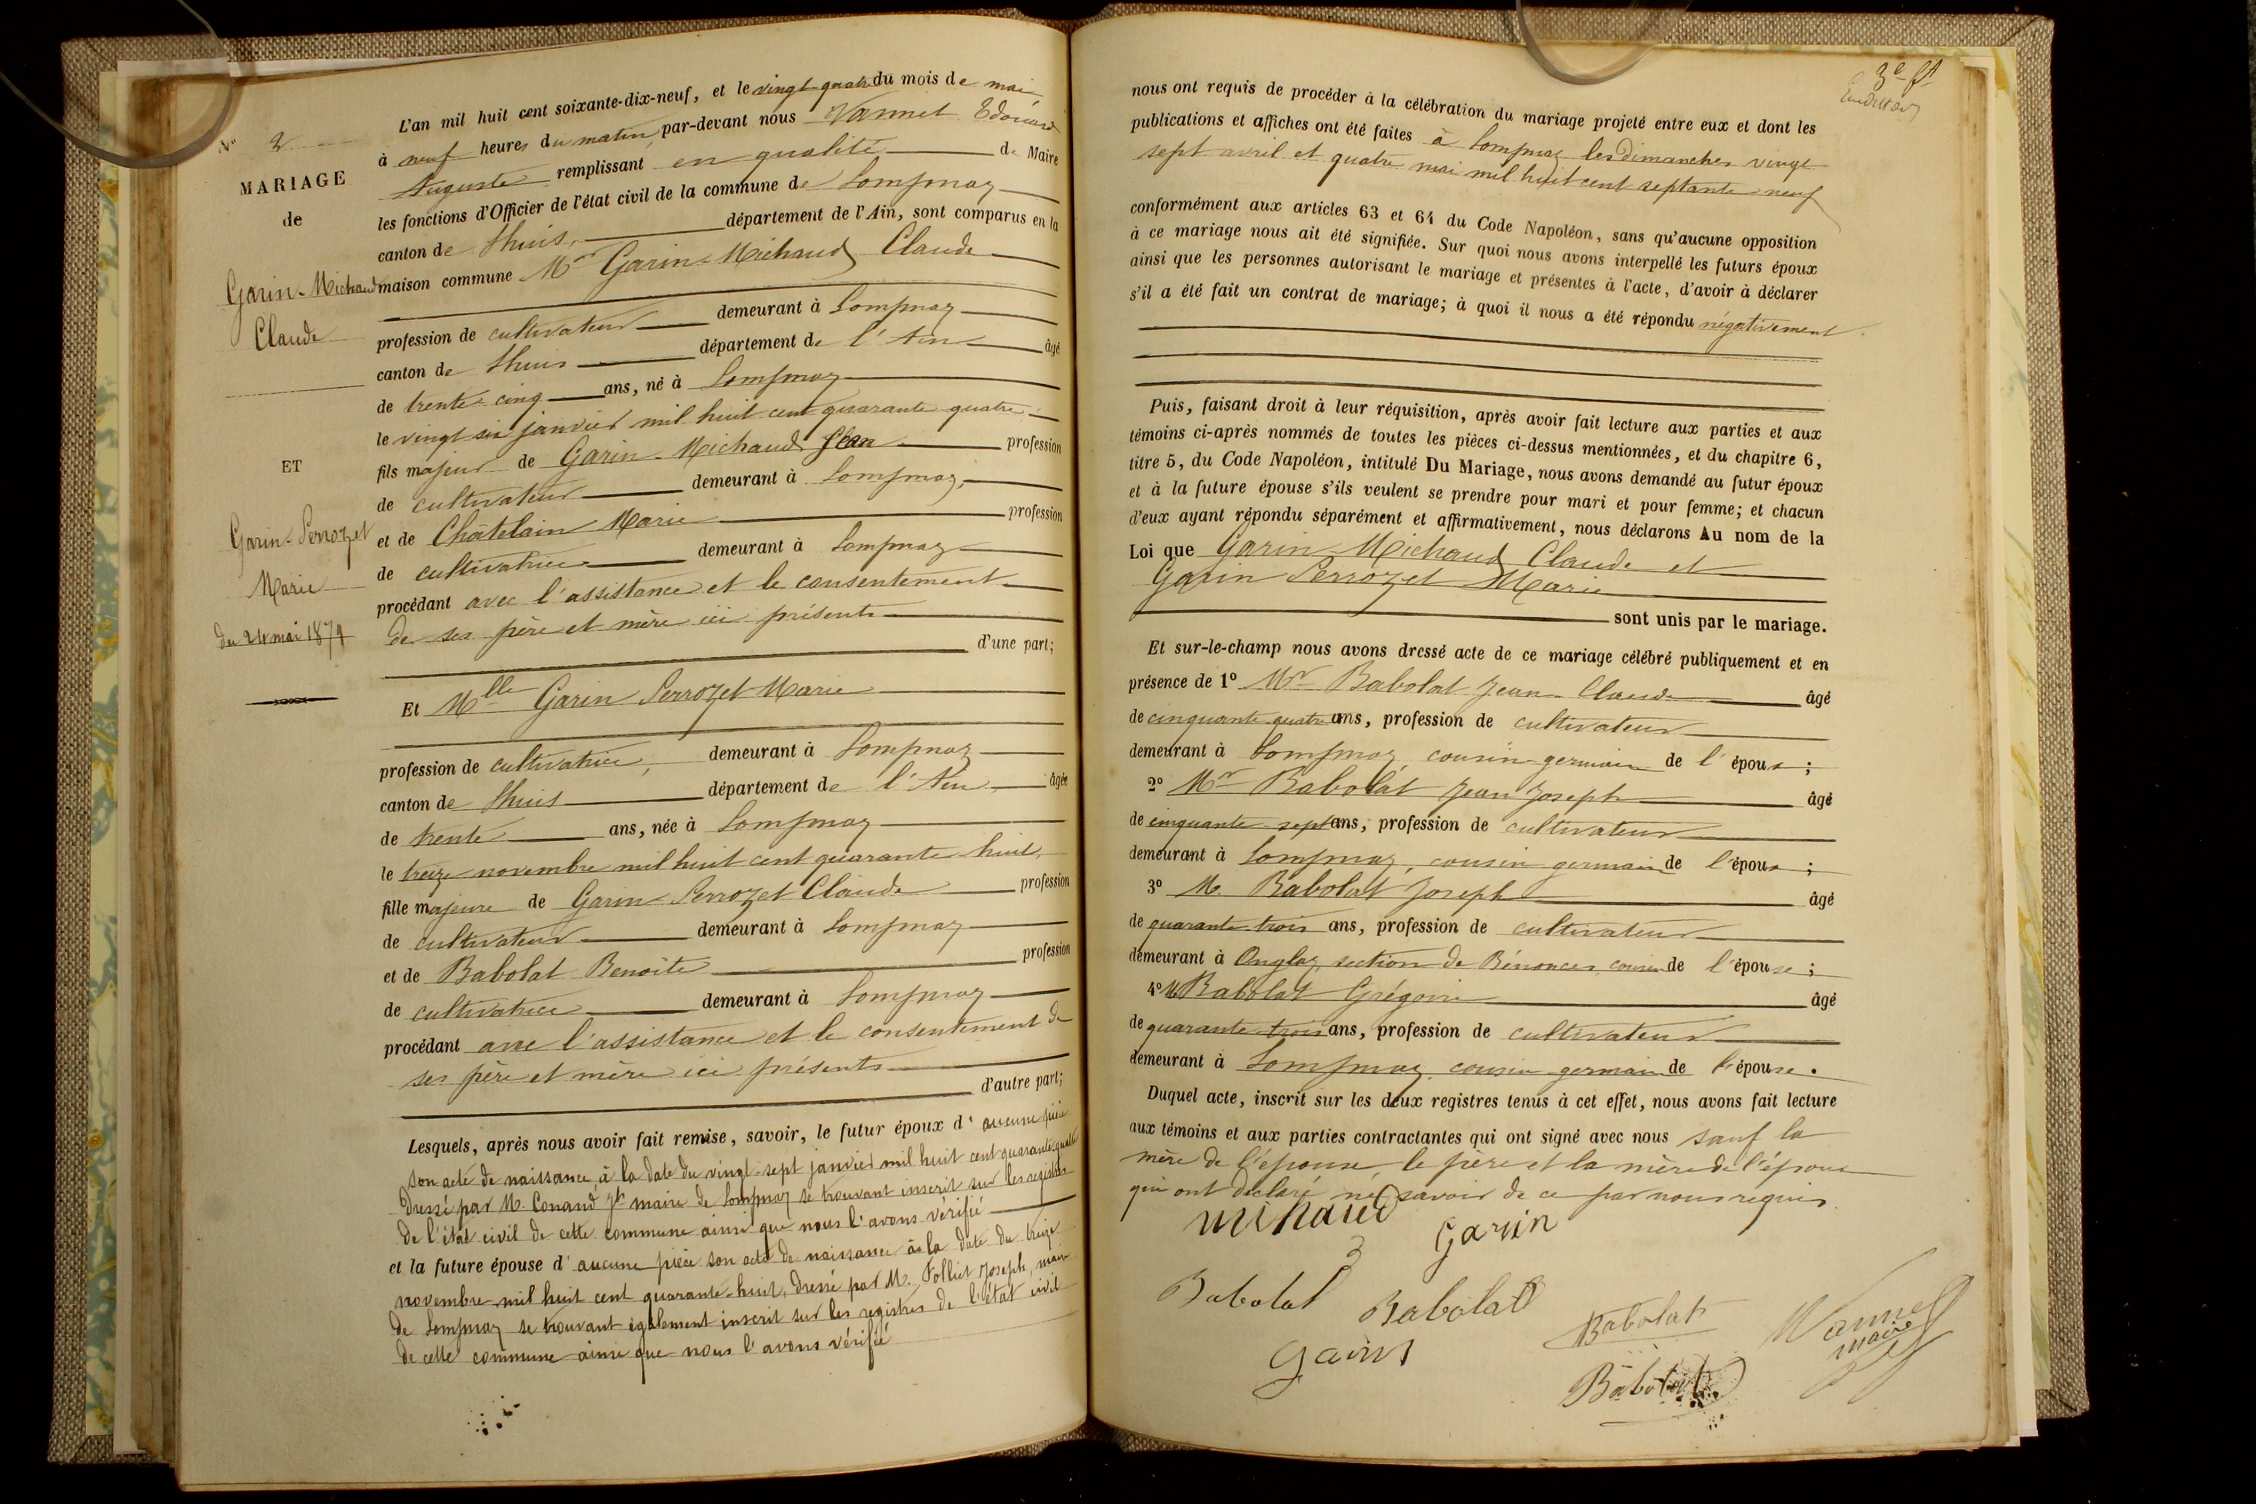 N° 2
MARIAGE
de
Garin-Michaud
Claude
ET
Garin-Perrozet
Marie
du 24 mai 1879
L'an mil huit cent soixante-dix-neuf, et le vingt-quatre du mois de mai
à neuf heures du matin, par-devant nous Vannet Edouard
Auguste remplissant en qualité de Maire
les fonctions d'Officier de l'état civil de la commune de Lompnaz
canton de Lhuis, département de l'Ain, sont comparus en la
maison commune Mr Garin-Michaud Claude
profession de cultivateur demeurant à Lompnaz
canton de Lhuis département de l'Ain âgé
de trente-cinq ans, né à Lompnaz
le vingt six janvier mil huit cent quarante quatre
fils majeur de Garin-Michaud Jean profession
de cultivateur demeurant à Lompnaz,
et de Châtelain Marie profession
de cultivatrice demeurant à Lompnaz
procédant avec l'assistance et le consentement
de ses père et mère ici présents
d'une part;
Et Mlle Garin Perrozet Marie
profession de cultivatrice, demeurant à Lompnaz
canton de Lhuis département de l'Ain âgée
de trente ans, née à Lompnaz
le treize novembre mil huit cent quarante huit,
fille majeure de Garin-Perrozet Claude profession
de cultivateur demeurant à Lompnaz
et de Babolat Benoîte profession
de cultivatrice demeurant à Lompnaz
procédant avec l'assistance et le consentement de
ses père et mère ici présents
d'autre part;
Lesquels, après nous avoir fait remise, savoir, le futur époux d'aucune pièce
son acte de naissance, à la date du vingt-sept janvier mil huit cent quarante-quatre
dressé par M. Conand Jh maire de Lompnaz se trouvant inscrit sur les registres
de l'état civil de cette commune ainsi que nous l'avons vérifié
et la future épouse d'aucune pièce son acte de naissance à la date du treize
novembre mil huit cent quarante-huit, dressé par M. Folliet Joseph, maire
de Lompnaz se trouvant également inscrit sur les registres de l'état civil
de cette commune ainsi que nous l'avons vérifié
3e ft
nous ont requis de procéder à la célébration du mariage projeté entre eux et dont les
publications et affiches ont été faites à Lompnaz les dimanches vingt
sept avril et quatre mai mil huit cent septante neuf
conformément aux articles 63 et 64 du Code Napoléon, sans qu'aucune opposition
à ce mariage nous ait été signifiée. Sur quoi nous avons interpellé les futurs époux
ainsi que les personnes autorisant le mariage et présentes à l'acte, d'avoir à déclarer
s'il a été fait un contrat de mariage; à quoi il nous a été répondu négativement.
Puis, faisant droit à leur réquisition, après avoir fait lecture aux parties et aux
témoins ci-après nommés de toutes les pièces ci-dessus mentionnées, et du chapitre 6,
titre 5, du Code Napoléon, intitulé Du Mariage, nous avons demandé au futur époux
et à la future épouse s'ils veulent se prendre pour mari et pour femme; et chacun
d'eux ayant répondu séparément et affirmativement, nous déclarons Au nom de la
Loi que Garin-Michaud Claude et
Garin Perrozet Marie
sont unis par le mariage.
Et sur-le-champ nous avons dressé acte de ce mariage célébré publiquement et en
présence de 1° Mr Babolat Jean-Claude âgé
de cinquante-quatre ans, profession de cultivateur
demeurant à Lompnaz, cousin germain de l'époux;
2° Mr Babolat Jean Joseph âgé
de cinquante-sept ans, profession de cultivateur
demeurant à Lompnaz, cousin germain de l'époux;
3° M. Babolat Joseph âgé
de quarante trois ans, profession de cultivateur
demeurant à Onglaz, section de Bénonces, cousin de l'épouse;
4° M Babolat Grégoire âgé
de quarante-trois ans, profession de cultivateur
demeurant à Lompnaz, cousin germain de l'épouse.
Duquel acte, inscrit sur les deux registres tenus à cet effet, nous avons fait lecture
aux témoins et aux parties contractantes qui ont signé avec nous sauf la
mère de l'épouse, le père et la mère de l'époux
qui ont déclaré ne savoir de ce par nous requis.
michaud
Garin
Babolat
Babolat
Babolat
Vannet
maire
Garin
Babolat